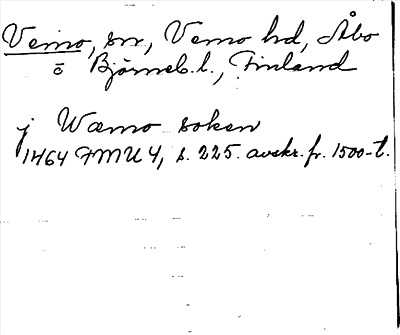 Vemo, sn, Vemo hd, Åbo
o Björneb. l., Finland
j Wæmo soken
1464 FMU 4, s. 225. avskr. fr. 1500-t.